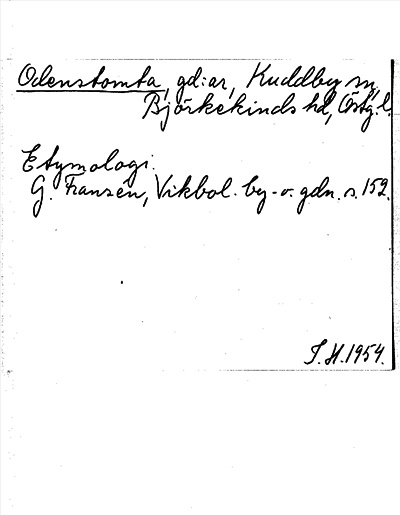 Odenstomta, gd:ar, Kuddby sn,
Björkekinds hd, Östg.l.
Etymologi:
G. Franzén, Vikbol. by- o. gdn. s. 152.
I.H.1954.